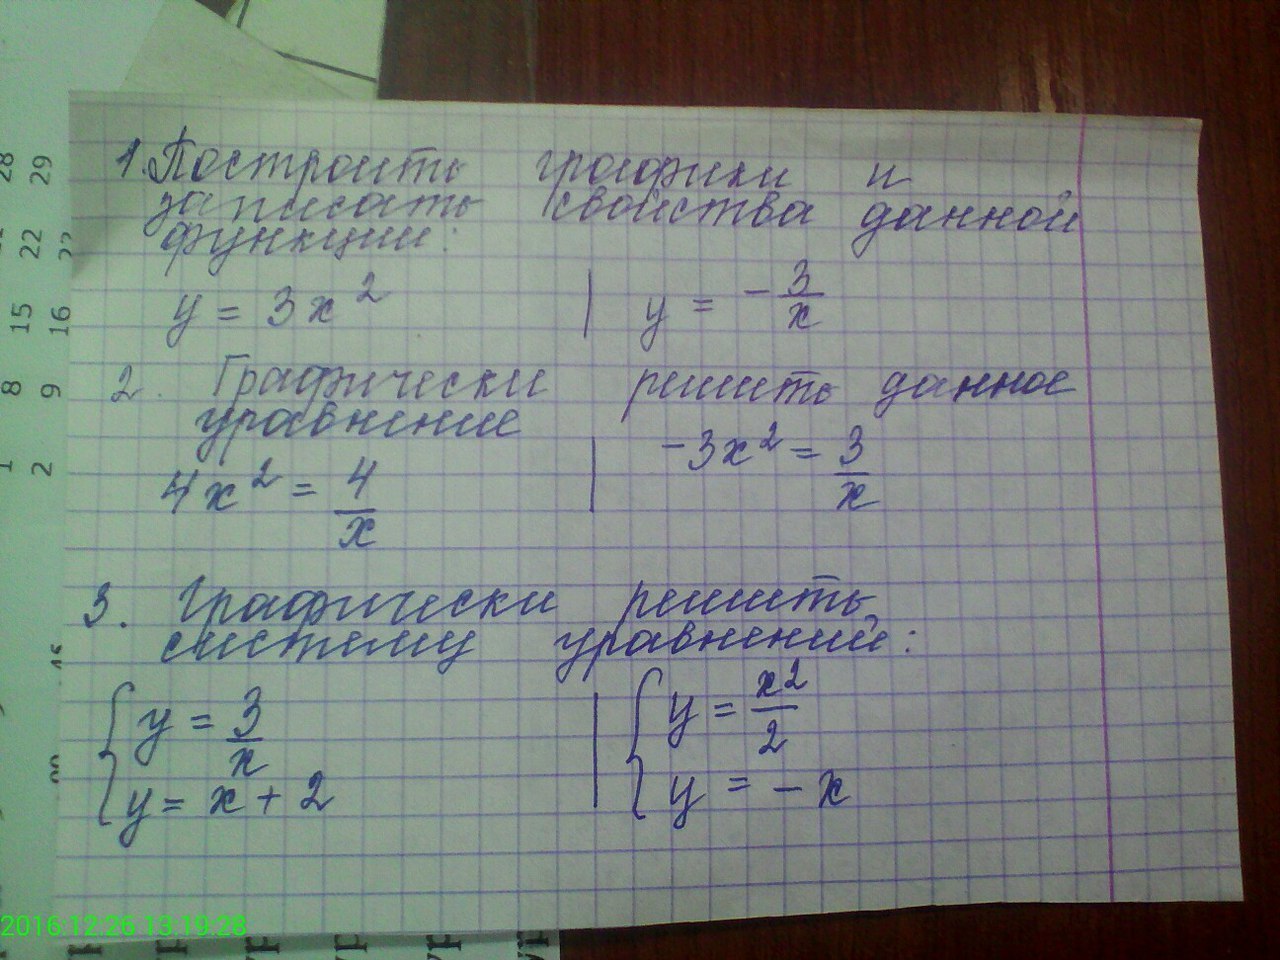 1. Построить графики и
записать свойства данной
функции:
y = 3x² | y = -3/x
2. Графически решить данное
уравнение
4x² = 4/x | -3x² = 3/x
3. Графически решить
систему уравнений:
{ y = 3/x | { y = x²/2
y = x + 2 | y = -x
28 29
22
15 16
8 9
1 2
2016.12.26 13:19:28